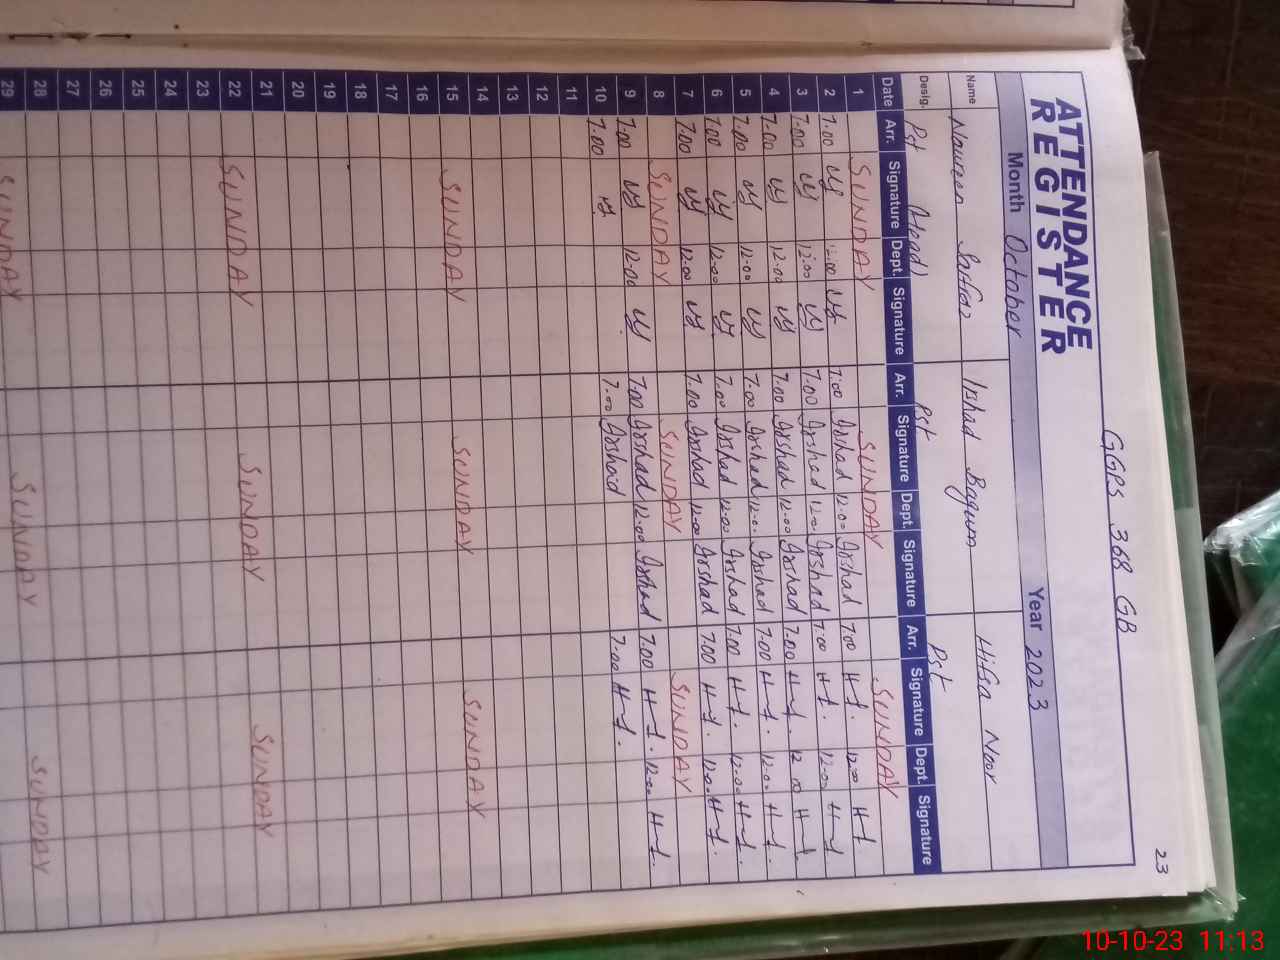 GGPS 368 GB
23
ATTENDANCE
REGISTER
Month October Year 2023
Name Naureen Irshad Begum Hifza Noor
Desig. Pst (Head) Pst Pst
Date Arr. Signature Dept. Signature Arr. Signature Dept. Signature Arr. Signature Dept. Signature
1 SUNDAY SUNDAY SUNDAY
2 7.00 12.00 7.00 Irshad 12.00 Irshad 7.00 H-f. 12.00 H-f
3 7.00 12.00 7.00 Irshad 12.00 Irshad 7.00 H-f. 12.00 H-f
4 7.00 12.00 7.00 Irshad 12.00 Irshad 7.00 H-f. 12.00 H-f
5 7.00 12.00 7.00 Irshad 12.00 Irshad 7.00 H-f. 12.00 H-f.
6 7.00 12.00 7.00 Irshad 12.00 Irshad 7.00 H-f. 12.00 H-f.
7 7.00 12.00 7.00 Irshad 12.00 Irshad 7.00 H-f. 12.00 H-f.
8 SUNDAY SUNDAY SUNDAY
9 7.00 12.00 7.00 Irshad 12.00 Irshad 7.00 H-f. 12.00 H-f.
10 7.00 7.00 Irshad 7.00 H-f.
11
12
13
14
15 SUNDAY SUNDAY SUNDAY
16
17
18
19
20
21
22 SUNDAY SUNDAY SUNDAY
23
24
25
26
27
28
29 SUNDAY SUNDAY SUNDAY
10-10-23 11:13